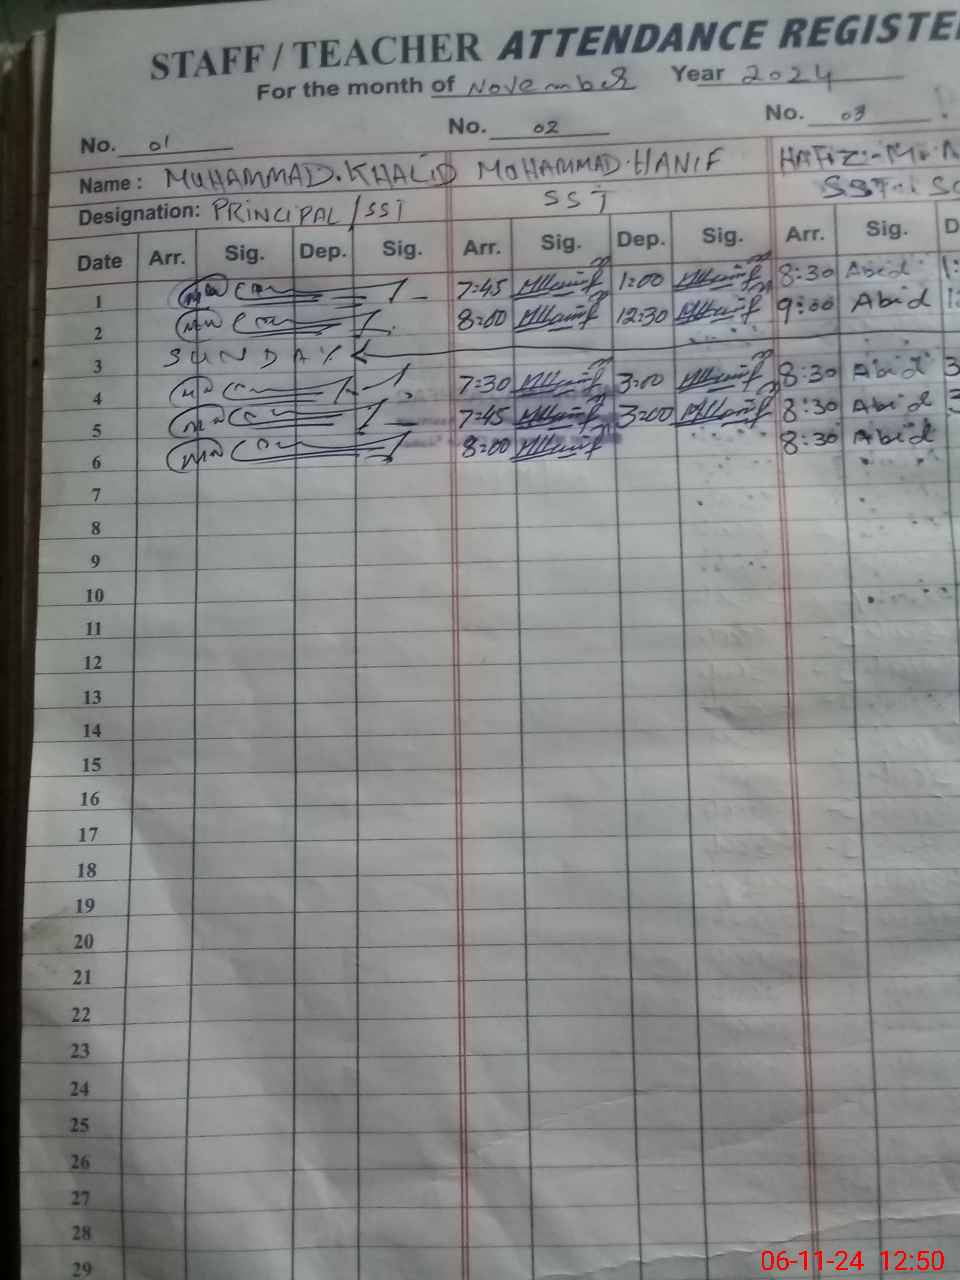 STAFF / TEACHER ATTENDANCE REGISTE
For the month of November Year 2024
No. 01 No. 02 No. 03
Name: MUHAMMAD.KHALID MOHAMMAD.HANIF HAFIZ:-M
Designation: PRINCIPAL/SST SST SST
Date Arr. Sig. Dep. Sig. Arr. Sig. Dep. Sig. Arr. Sig. D
1 7:45 MHanif 1:00 MHanif 8:30 Abid 1:
2 8:00 MHanif 12:30 MHanif 9:00 Abid
3 SUNDAY
4 7:30 MHanif 3:00 MHanif 8:30 Abid 3
5 7:45 MHanif 3:00 MHanif 8:30 Abid 3
6 8:00 MHanif 8:30 Abid
7
8
9
10
11
12
13
14
15
16
17
18
19
20
21
22
23
24
25
26
27
28
29
06-11-24 12:50